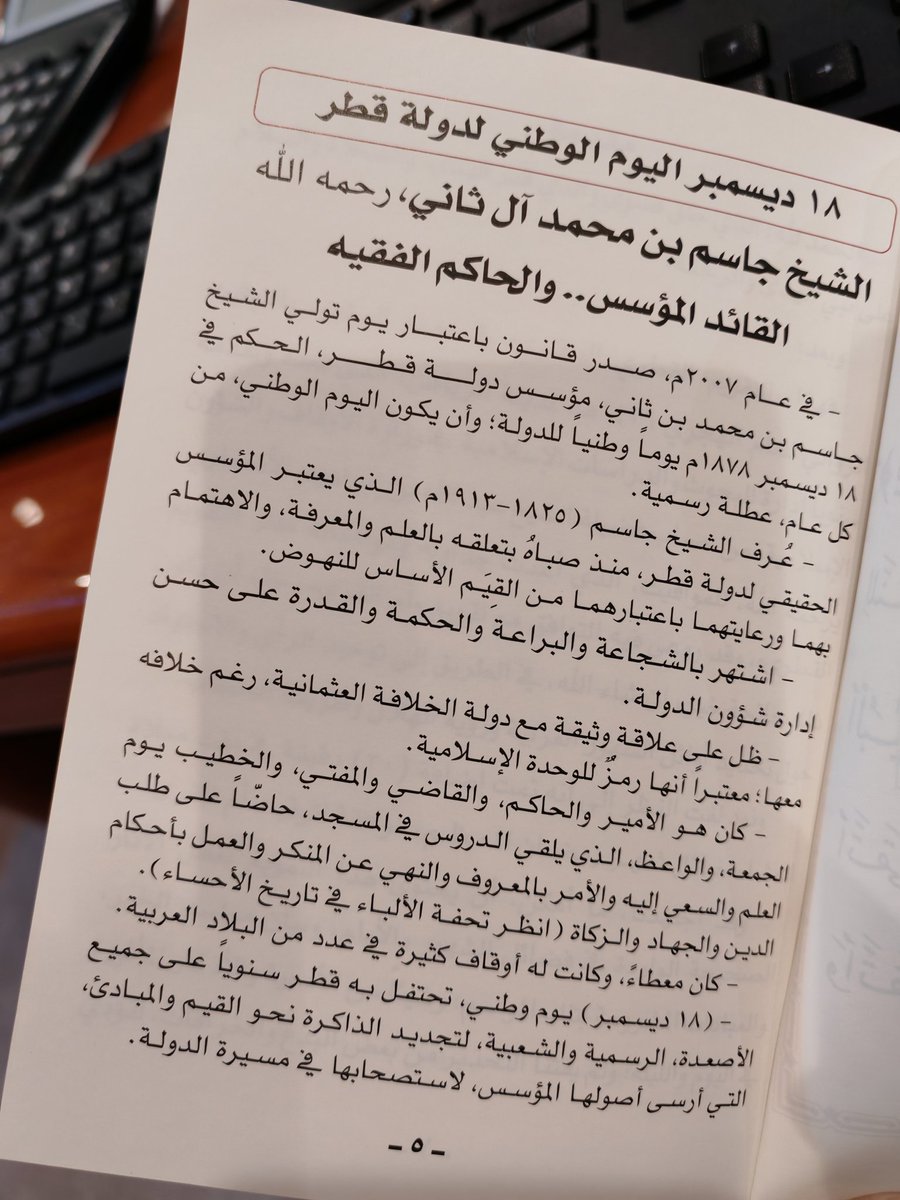 ١٨ ديسمبر اليوم الوطني لدولة قطر
الشيخ جاسم بن محمد آل ثاني، رحمه الله
القائد المؤسس.. والحاكم الفقيه
- في عام ٢٠٠٧م، صدر قانون باعتبار يوم تولي الشيخ
جاسم بن محمد بن ثاني، مؤسس دولة قطر، الحكم في
١٨ ديسمبر ١٨٧٨م يوماً وطنياً للدولة؛ وأن يكون اليوم الوطني، من
كل عام، عطلة رسمية.
- عُرف الشيخ جاسم (١٨٢٥-١٩١٣م) الذي يعتبر المؤسس
الحقيقي لدولة قطر، منذ صباهُ بتعلقه بالعلم والمعرفة، والاهتمام
بهما ورعايتهما باعتبارهما من القِيَم الأساس للنهوض.
- اشتهر بالشجاعة والبراعة والحكمة والقدرة على حسن
إدارة شؤون الدولة.
- ظل على علاقة وثيقة مع دولة الخلافة العثمانية، رغم خلافه
معها؛ معتبراً أنها رمزٌ للوحدة الإسلامية.
- كان هو الأمير والحاكم، والقاضي والمفتي، والخطيب يوم
الجمعة، والواعظ، الذي يلقي الدروس في المسجد، حاضّاً على طلب
العلم والسعي إليه والأمر بالمعروف والنهي عن المنكر والعمل بأحكام
الدين والجهاد والزكاة (انظر تحفة الألباء في تاريخ الأحساء).
- كان معطاءً، وكانت له أوقاف كثيرة في عدد من البلاد العربية.
- (١٨ ديسمبر) يوم وطني، تحتفل به قطر سنوياً على جميع
الأصعدة، الرسمية والشعبية، لتجديد الذاكرة نحو القيم والمبادئ،
التي أرسى أصولها المؤسس، لاستصحابها في مسيرة الدولة.
- ٥ -